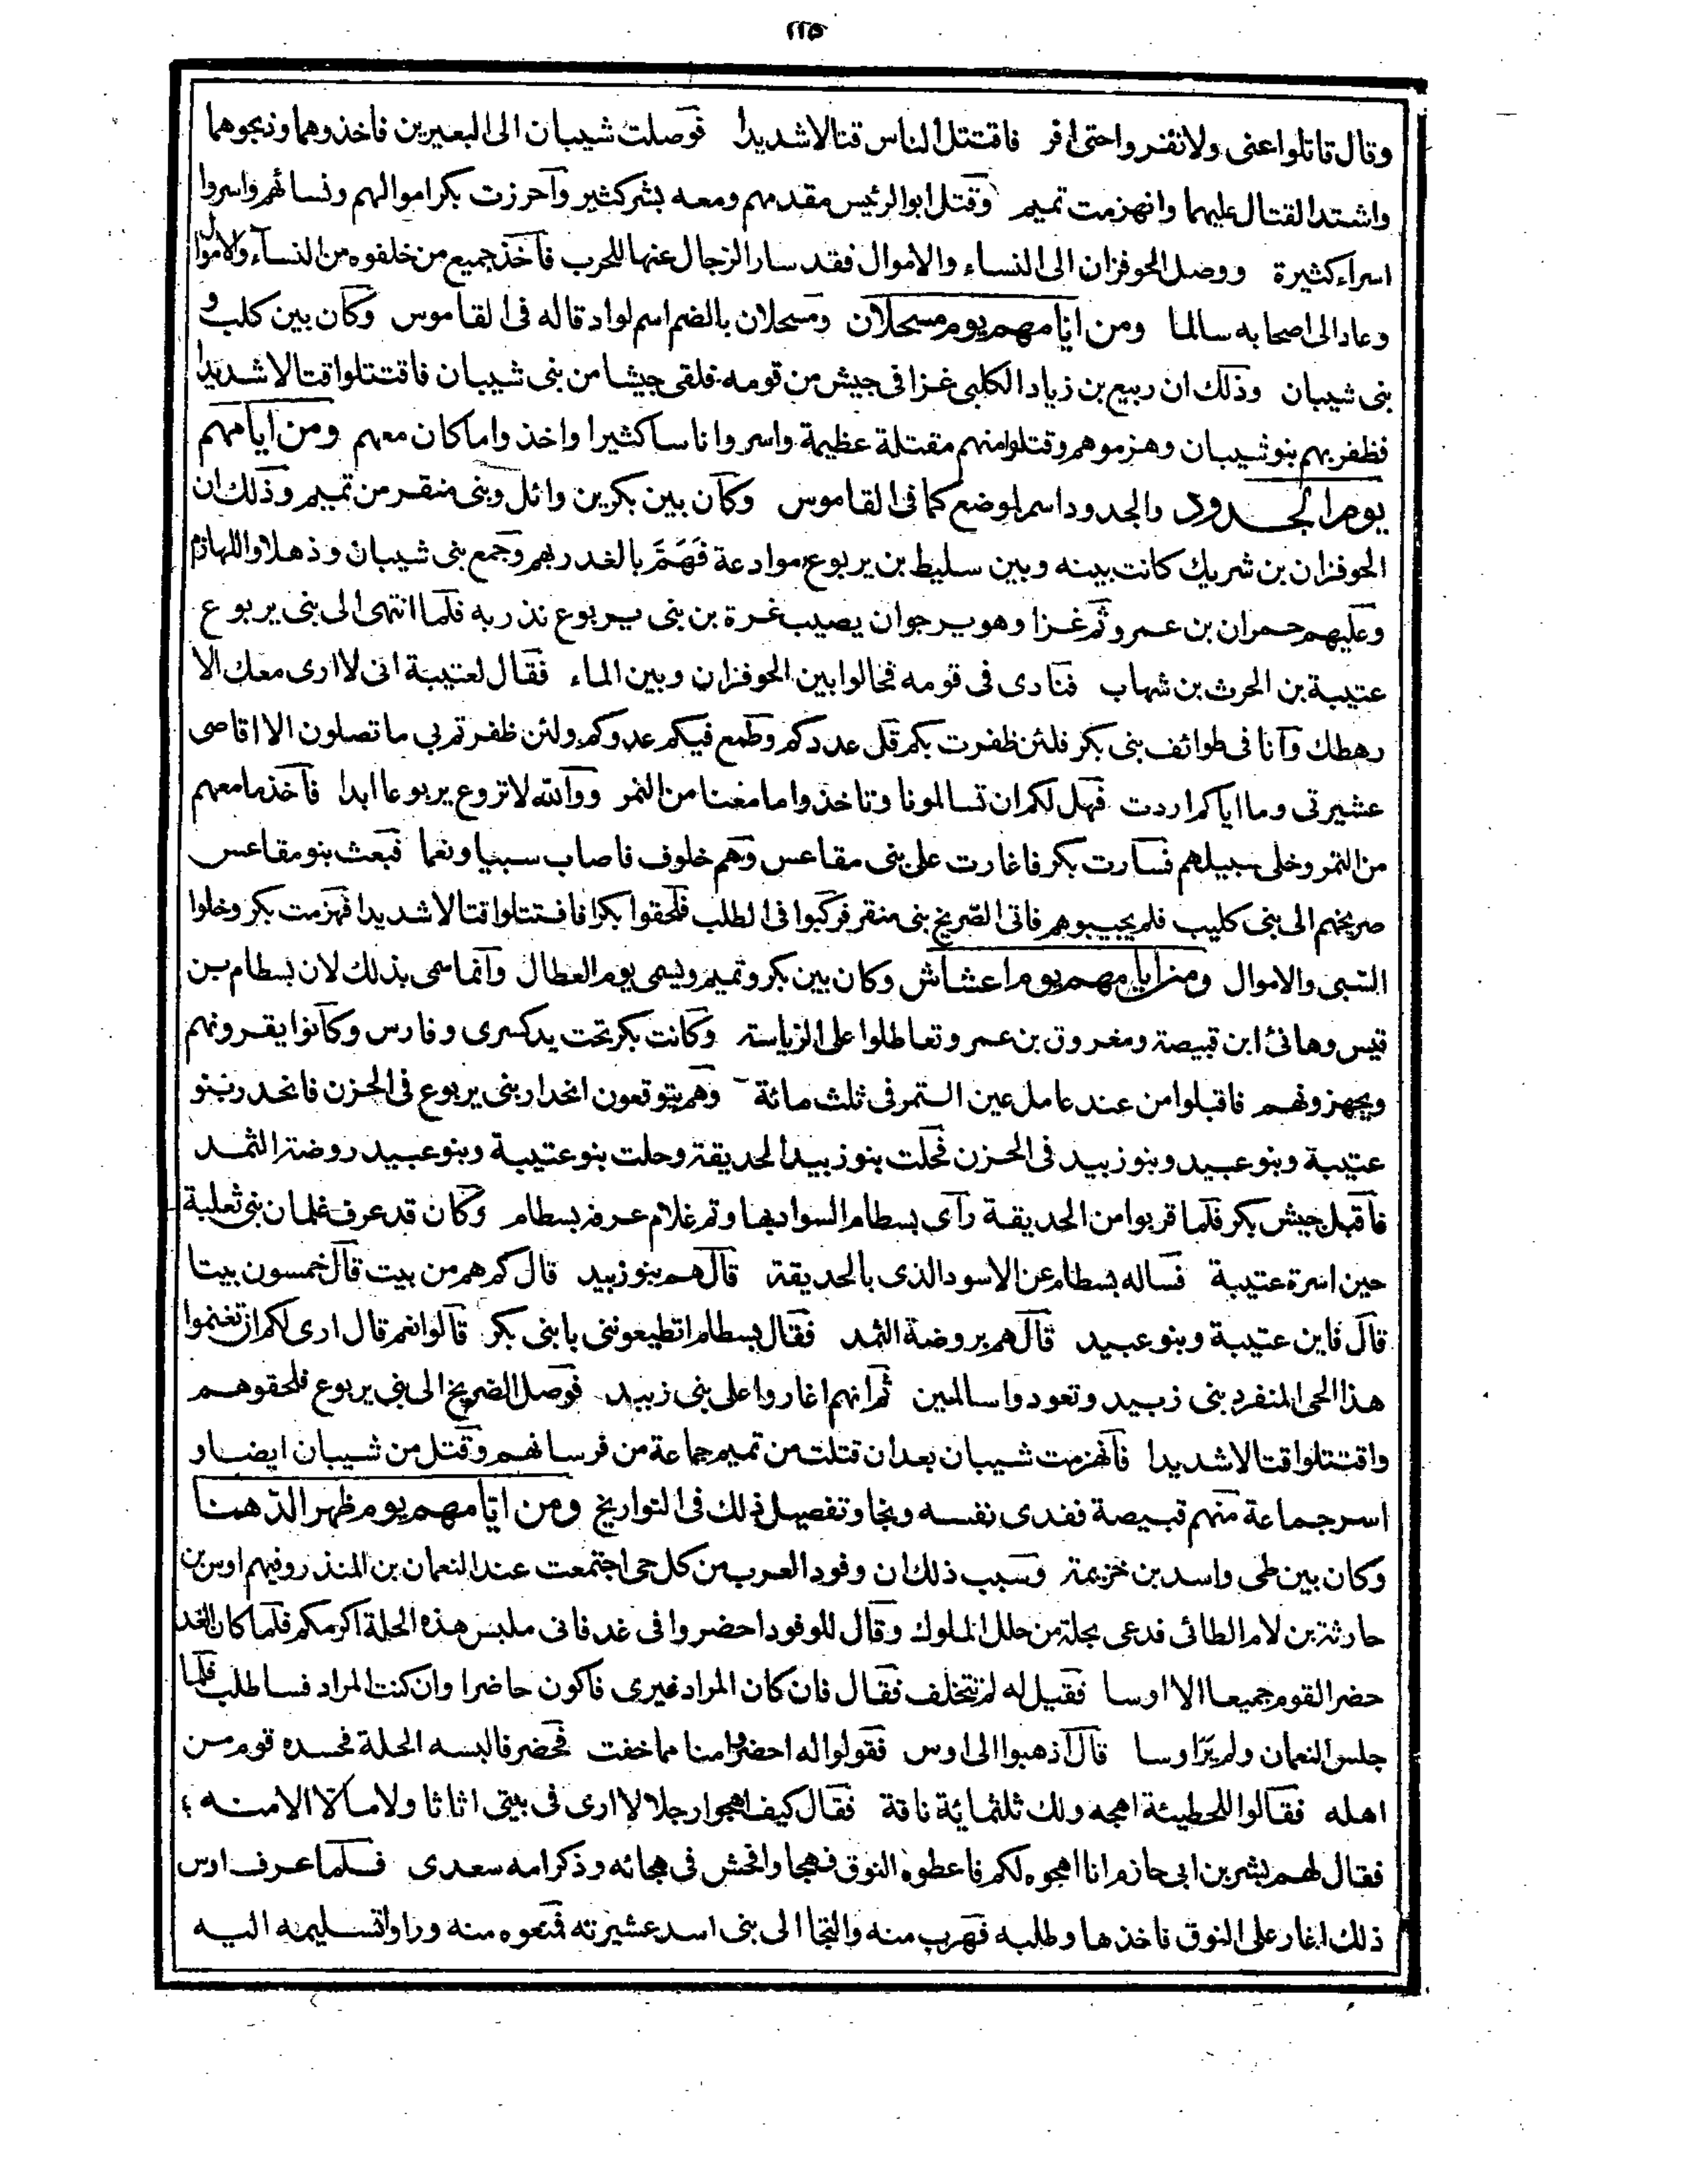 ١١٥
وقال قاتلوا عنى ولا تفروا حتى افر فاقتتل الناس قتالا شديدا فوصلت شيبان الى البعيرين فاخذوهما وذبحوهما
واشتد القتال عليهما وانهزمت تميم وقتل ابو الرئيس مقدمهم ومعه بشر كثير وآحرزت بكر اموالهم ونسائهم واسروا
اسراء كثيرة ووصل الحوفزان الى النساء والاموال فقد سار الرجال عنها للحرب فآخذ جميع من خلفوه من النسآء والاموال
وعاد الى اصحابه سالما ومن ايامهم يوم مسحلان ومسحلان بالضم اسم لواد قاله فى القاموس وكان بين كلب و
بنى شيبان وذلك ان ربيع بن زياد الكلبى غزا فى جيش من قومه فلقى جيشا من بنى شيبان فاقتتلوا قتالا شديدا
فظفر بهم بنو شيبان وهزموهم وقتلوا منهم مقتلة عظيمة واسروا ناسا كثيرا واخذوا ما كان معهم ومن ايامهم
يوم الجدود والجدود اسم لموضع كما فى القاموس وكان بين بكر بن وائل وبنى منقر من تميم وذلك ان
الحوفزان بن شريك كانت بينه وبين سليط بن يربوع موادعة فَهَمَّ بالغدر بهم وجمع بنى شيبان وذهلا واللهازم
وعليهم حمران بن عمرو ثم غزا وهو يرجوان يصيب غرة بن بنى يربوع نذر به فلما انتهى الى بنى يربوع
عتيبة بن الحرث بن شهاب فنادى فى قومه فحالوا بين الحوفزان وبين الماء فقال لعتيبة انى لا ارى معك الا
رهطك وآنا فى طوائف بنى بكر فلئن ظفرت بكم قل عددكم وطمع فيكم عدوكم ولئن ظفرتم بي ما تصلون الا اقاصى
عشيرتى وما اياكم اردت فهل لكم ان تسالمونا وتاخذوا ما معنا من التمر ووآلله لا تروع يربوعا ابدا فآخذ ما معهم
من التمر وخلى سبيلهم فسارت بكر فاغارت على بنى مقاعس وهم خلوف فاصاب سبيا ونعما فبعث بنو مقاعس
صريخهم الى بنى كليب فلم يجيبوهم فاتى الصّريخ بنى منقر فركبوا فى الطلب فلحقوا بكرا فاقتتلوا قتالا شديدا فهزمت بكر وخلوا
السّبى والاموال ومن ايامهم يوم اعشاش وكان بين بكر وتميم ويسمى يوم العطال وآنما سمى بذلك لان بسطام بن
قيس وهانئ ابن قبيصة ومفروق بن عمر وتعاطلوا على الرياسة وكانت بكر تحت يد كسرى وفارس وكآنوا يقرونهم
ويجهزونهم فاقبلوا من عند عامل عين التمر فى ثلث مائة وهم يتوقعون انحدار بنى يربوع فى الحزن فانحدر بنو
عتيبة وبنو عبيد وبنو زبيد فى الحزن فحلت بنو زبيد الحديقة وحلت بنو عتيبة وبنو عبيد روضة الثمد
فآقبل جيش بكر فلما قربوا من الحديقة رآى بسطام السواد بها وثم غلام عرفه بسطام وكان قد عرف غلمان بنى ثعلبة
حين اسرة عتيبة فساله بسطام عن الاسود الذى بالحديقة قال هم بنو زبيد قال كم هم من بيت قال خمسون بيتا
قال فاين عتيبة وبنو عبيد قال هم بروضة الثمد فقال بسطام اتطيعوننى يا بنى بكر قالوا نعم قال ارى لكم ان تغنموا
هذا الحى المنفرد بنى زبيد وتعودوا سالمين ثم انهم اغاروا على بنى زبيد فوصل الصريخ الى بنى يربوع فلحقوهم
واقتتلوا قتالا شديدا فآنهزمت شيبان بعد ان قتلت من تميم جماعة من فرسانهم وقتل من شيبان ايضا و
اسر جماعة منهم قبيصة ففدى نفسه ونجا وتفصيل ذلك فى التواريخ ومن ايّامهم يوم ظهر الدّهنا
وكان بين طى واسد بن خزيمة وسبب ذلك ان وفود العرب من كل حى اجتمعت عند النعمان بن المنذر وفيهم اوس بن
حارثة بن لام الطائى فدعى بحلة من حلل الملوك وقال للوفود احضروا فى غد فانى ملبس هذه الحلة اكرمكم فلما كان الغد
حضر القوم جميعا الا اوسا فقيل له لم تتخلف فقال فان كان المراد غيرى فاكون حاضرا وان كنت المراد فساطلب فلما
جلس النعمان ولم يرَ اوسا قال آذهبوا الى اوس فقولوا له احضر وامنا مما خفت فحضر فالبسه الحلة فحسده قوم من
اهله فقالوا للحطيئة اهجه ولك ثلثمائة ناقة فقال كيف اهجوا رجلا لا ارى فى بيتى اثاثا ولا مالا الا منه ؛
فقال لهم بشر بن ابى حازم انا اهجوه لكم فاعطوه النوق فهجا وافحش فى هجائه وذكر امه سعدى فلما عرف اوس
ذلك اغار على النوق فاخذها وطلبه فهرب منه والتجا الى بنى اسد عشيرته فمنعوه منه وراوا تسليمه اليه